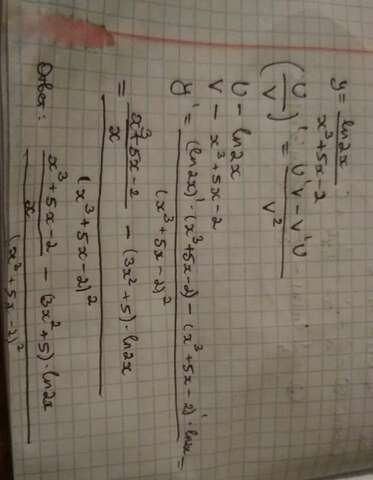 y = ln2x / (x³+5x-2)
(U/V)' = (U'V - V'U) / V²
U - ln2x
V - x³+5x-2
y' = ((ln2x)'·(x³+5x-2) - (x³+5x-2)'·ln2x) / (x³+5x-2)² =
= ((x³+5x-2)/x - (3x²+5)·ln2x) / (x³+5x-2)²
Ответ: ((x³+5x-2)/x - (3x²+5)·ln2x) / (x³+5x-2)²